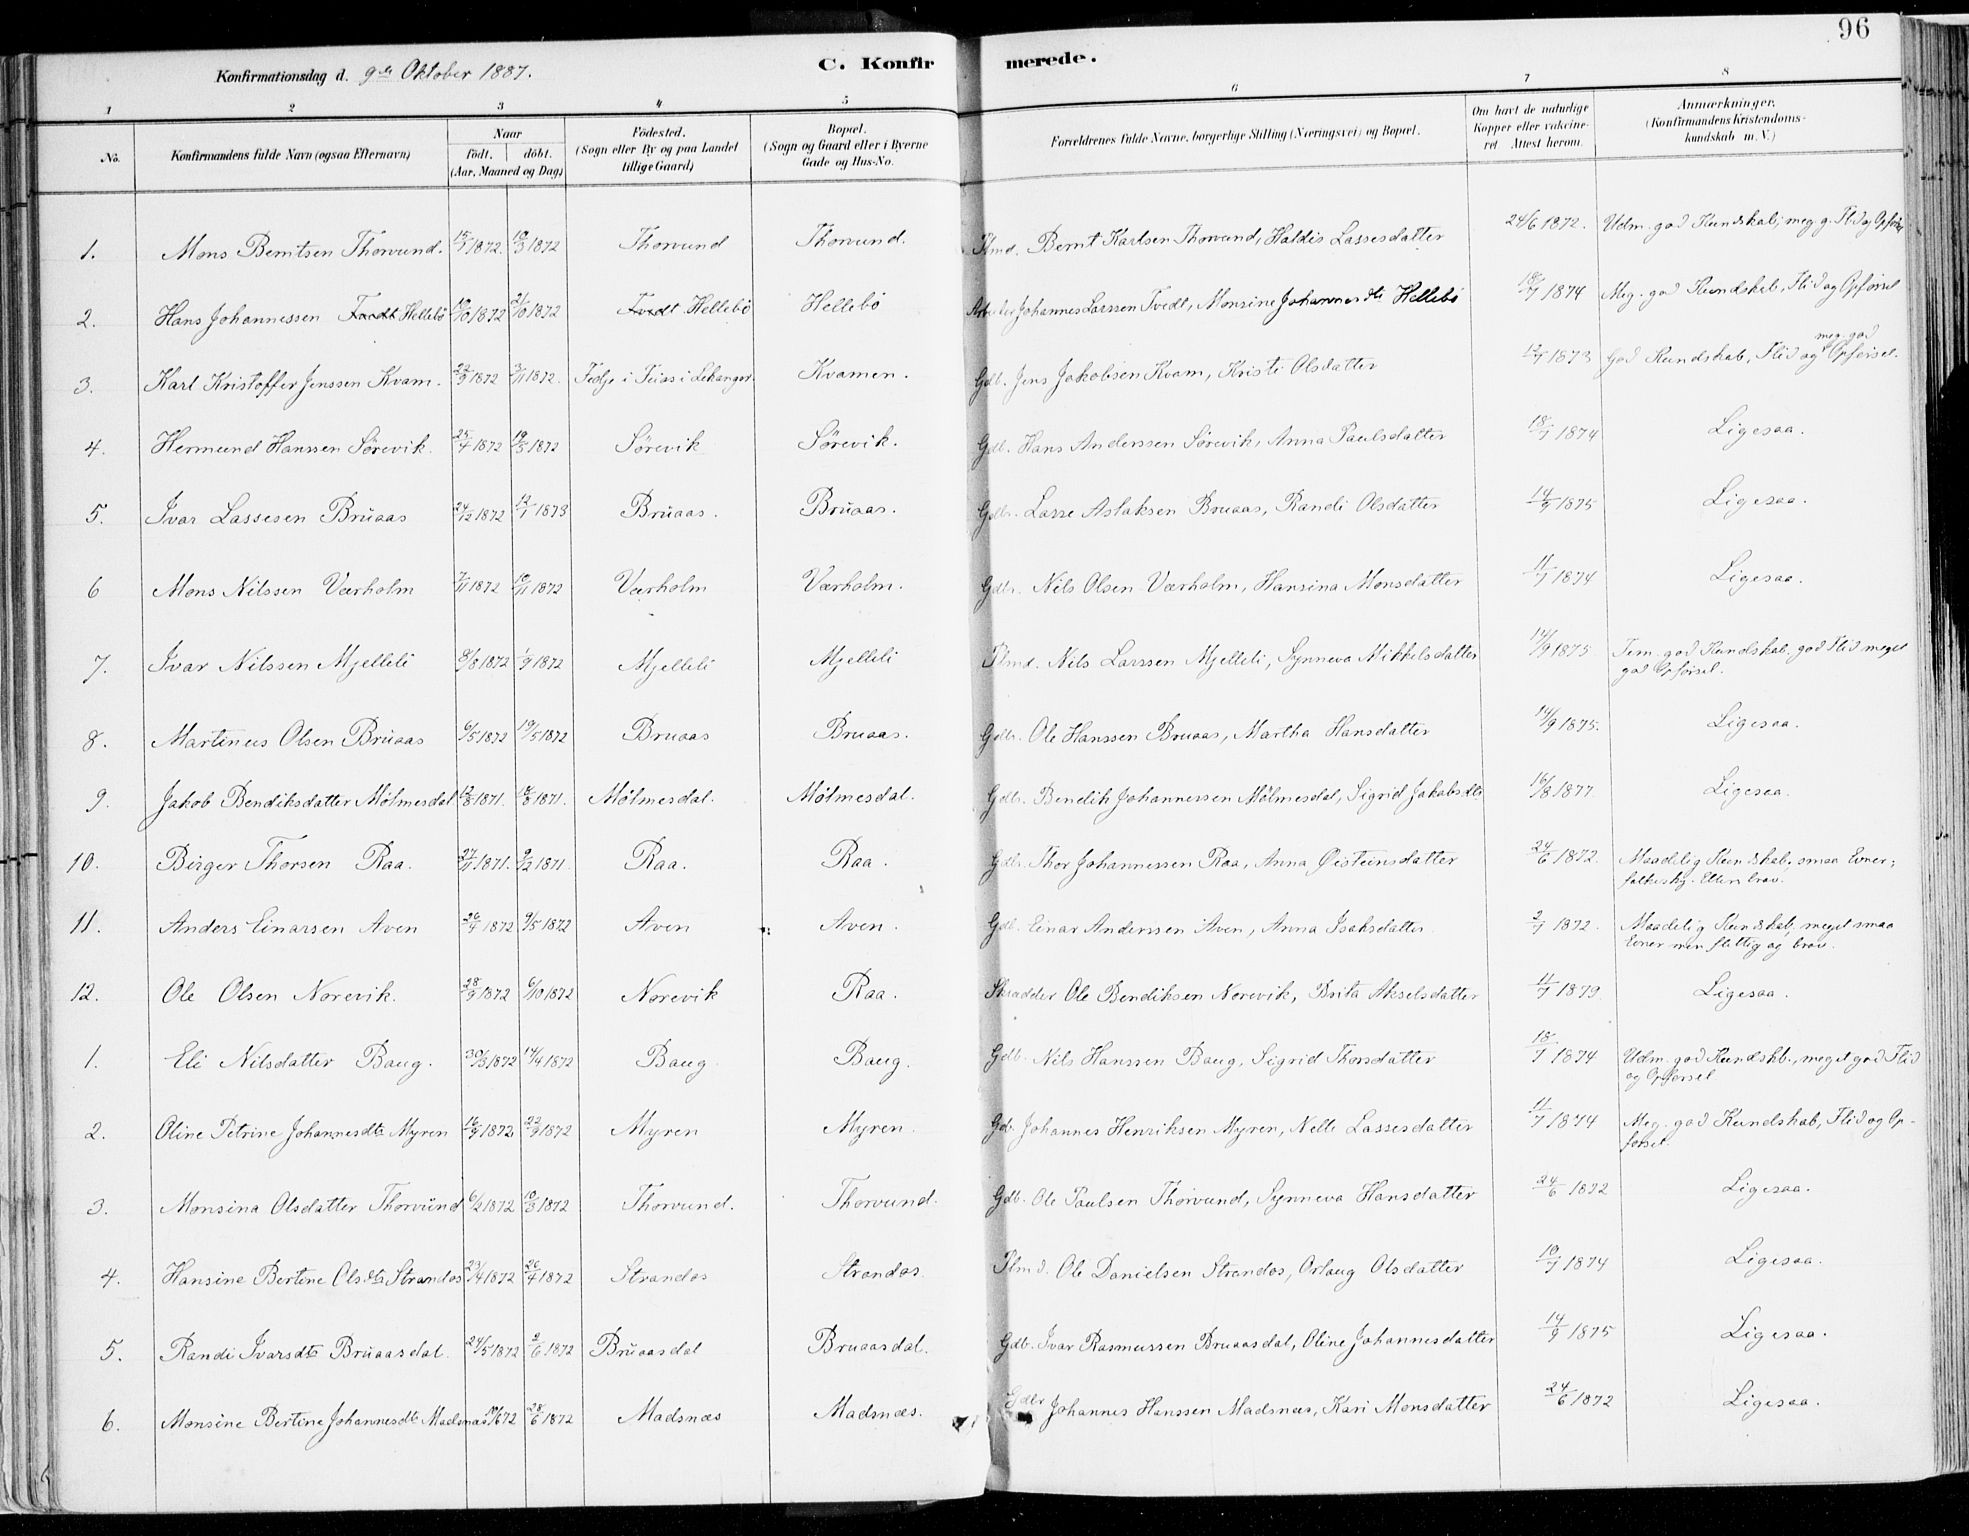 96
Konfirmationsdag d. 9de Oktober 1887.
C. Konfirmerede.
1 2 3 4 5 6 7 8
No. Konfirmandens fulde Navn (ogsaa Efternavn) Naar født. døbt. (Aar, Maaned og Dag) Fødested. (Sogn eller By og paa Landet tillige Gaard) Bopæl. (Sogn og Gaard eller i Byerne Gade og Hus-No. Forældrenes fulde Navne, borgerlige Stilling (Næringsvei) og Bopæl. Om havt de naturlige Kopper eller vakcineret Attest herom. Anmærkninger. (Konfirmandens Kristendomskundskab m. V.)
1. Mons Berntsen Thorvund. 1872. 10/3 1872 Thorvund Thorvund. Plmd. Bernt Karlsen Thorvund, Haldis Lassesdatter 24/6 1872. Udm. god Kundskab, meg. g. Flid og Opførsel
2. Hans Johannessen Tvedt Hellebø 1872 1872 Tvedt Hellebø Hellebø Arbeider Johannes Larssen Tvedt, Monsine Johannesdtr Hellebø 18/7 1874 Meg. god Kundskab, Flid og Opførsel
3. Karl Kristoffer Jenssen Kvam. 1872 3/11 1872. i Lekanger. Kvamen. Gdb. Jens Jakobsen Kvam, Kristi Olsdatter 1873 God Kundskab, Flid og meg. god Opførsel.
4. Hermund Hanssen Sørevik. 25/4 1872 19/5 1872 Sørevik Sørevik. Gdb. Hans Anderssen Sørevik, Anna Paulsdatter 18/7 1874 Ligesaa.
5. Ivar Lassesen Bruaas 24/12 1872 12/1 1873 Bruaas. Bruaas. Gdbr. Lasse Aslaksen Bruaas, Randi Olsdatter 14/9 1875 Ligesaa.
6 Mons Nilssen Værholm 7/11 1872 10/11 1872 Værholm Værholm. Gdbr. Nils Olsen Værholm, Hansina Monsdatter 11/7 1874 Ligesaa.
7. Ivar Nilssen Mjelleli 8/8 1872 1/9 1872 Mjelleli Mjelleli Plmd. Nils Larssen Mjelleli, Synneva Mikkelsdatter 14/9 1875 Tem. god Kundskab, god Flid meget god Opførsel.
8. Martinus Olsen Bruaas 6/5 1872 19/5 1872 Bruaas Bruaas. Gdbr. Ole Hanssen Bruaas, Martha Hansdatter 14/9 1875. Ligesaa.
9. Jakob Bendiksdatter Mølmesdal 12/8 1871. 18/8 1871. Mølmesdal. Mølmesdal. Gdbr. Bendik Johannessen Mølmesdal, Sigrid Jakobsdtr 16/8 1877 Ligesaa.
10. Birger Thorsen Raa. 27/11 1871. 9/12 1871. Raa. Raa. Gdbr. Thor Johannessen Raa, Anna Øisteinsdatter 24/6 1872. Maadelig Kundskab, smaa Evner; brav.
11. Anders Einarsen Aven 26/4 1872 9/5 1872 Aven Aven. Gdb. Einar Anderssen Aven, Anna Isaksdatter 2/7 1872. Maadelig Kundskab, meget smaa Evner men flittig og brav.
12. Ole Olsen Norevik. 28/9 1872 6/10 1872 Norevik Raa. Skrædder Ole Bendiksen Norevik, Brita Akselsdatter 11/7 1879 Ligesaa.
1. Eli Nilsdatter Baug. 30/3 1872 14/4 1872 Baug Baug. Gdb. Nils Hanssen Baug, Sigrid Thorsdatter 18/7 1874 Udm. god Kundskb., meget god Flid og Opførsel
2. Oline Petrine Johannesdtr Myren 16/9 1872 22/9 1872 Myren Myren. Gdb. Johannes Henriksen Myren, Nelle Lassesdatter 11/7 1874 Meg. god Kundskab, Flid og Opførsel.
3. Monsina Olsdatter Thorvund 6/2 1872 10/3 1872 Thorvund. Thorvund. Gdb. Ole Paulsen Thorvund, Synneva Hansdatter 24/6 1872 Ligesaa.
4. Hansine Bertine Olsdtr Strandos 23/4 1872 26/4 1872 Strandos Strandos. Plmd. Ole Danielsen Strandos, Orlaug Olsdatter 1874 Ligesaa.
5. Randi Ivarsdtr Bruaasdal. 24/5 1872 2/6 1872 Bruaasdal Bruaasdal. Gdb. Ivar Rasmussen Bruaasdal, Oline Johannesdatter 14/9 1875 Ligesaa.
6. Monsine Bertine Johannesdtr Madsnæs 72 28/6 1872 Madsnæs Madsnæs. Gdbr Johannes Hanssen Madsnæs, Kari Monsdatter 24/6 1872 Ligesaa.